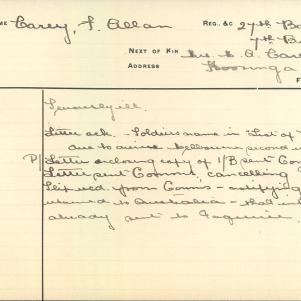 ME Carey, F. Allan REG. &C 27th B
7th B
NEXT OF KIN Mrs. M. A. Care
ADDRESS Hoorunga
F
Seriously ill.
Letter ack. - Soldiers name in "List of
due to arrive Melbourne second
P/ Letter enclosing copy of I/B sent Con
Letter sent Comms, cancelling
Slip recd. from Comms - notifying
returned to Australia - that in
already sent to Enquirer.